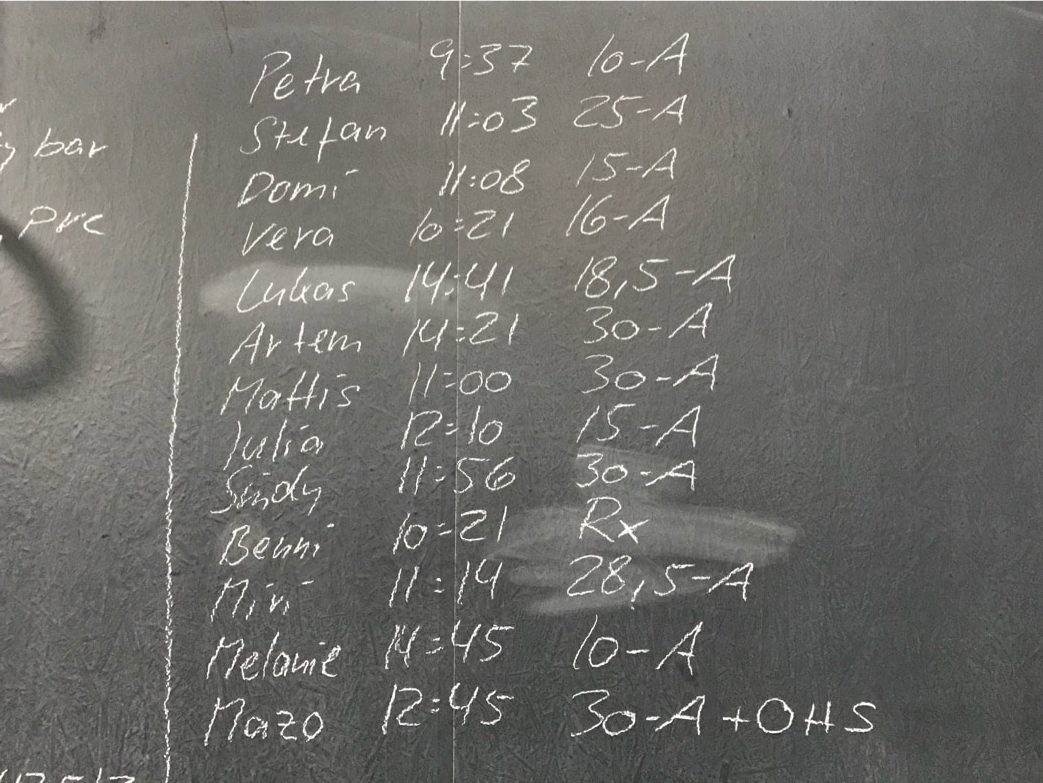 bar
Prc
Petra 9:37 10-A
Stefan 11:03 25-A
Domi 11:08 15-A
Vera 10:21 16-A
Lukas 14:41 18,5-A
Artem 14:21 30-A
Mattis 11:00 30-A
Julia 12:10 15-A
Sindy 11:56 30-A
Benni 10:21 Rx
Miri 11:14 28,5-A
Melanie 14:45 10-A
Mazo 12:45 30-A + OHS